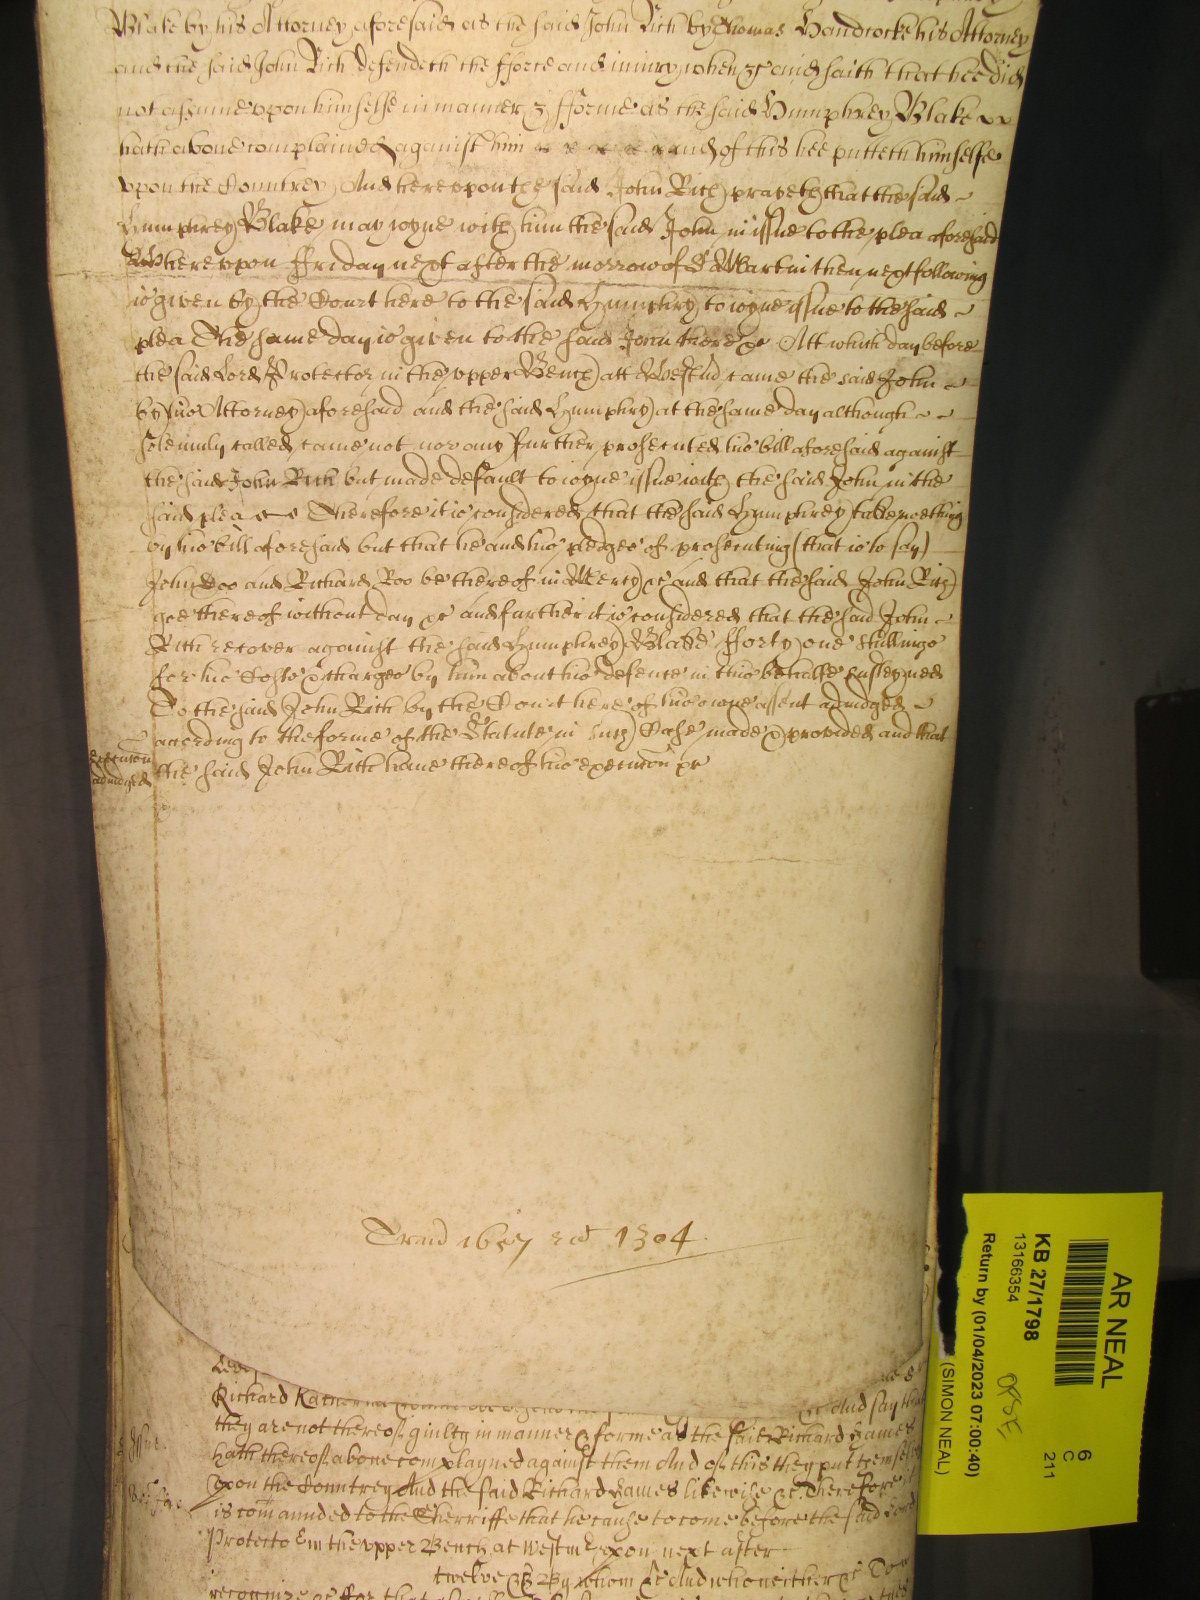 Blake by his Attorney aforesaid as the said John Rich by Thomas Handcocke his Attorney
and the said John Rich defendeth the fforce and iniury when &c and saith that hee did
not assume vpon himselfe in manner & fforme as the said Humphrey Blake
hath aboue complained against him and of this hee putteth himselfe
vpon the Countrey And herevpon the said John Rich prayeth that the said
Humphrey Blake may ioyne with him the said John in issue to the plea aforesaid
Wherevpon ffriday next after the morrow of St Martin then next following
is given by the Court here to the said Humphry to ioyne issue to the said
plea The same day is given to the said John there &c Att which day before
the said Lord Protector in the vpper Bench att Westmr came the said John
by his Attorney aforesaid and the said Humphry at the same day although
solemnly called came not nor any further prosecuted his bill aforesaid against
the said John Rich but made default to ioyne issue with the said John in the
said plea Therefore it is considered that the said Humphrey take nothing
by his bill aforesaid but that he and his pledges of prosecuting (that is to say)
John Doo and Richard Roo be thereof in Mercy &c and that the said John Rich
goe thereof without day &c and further it is considered that the said John
Rich recover against the said Humphrey Blake fforty one shillings
for his Costs & charges by him about his defence in this behalfe susteyned
To the said John Rich by the Court here of his owne assent adiudged
according to the forme of the Statute in such Case made & provided and that
the said John Rich haue thereof his execucon &c
execucon
adiudged
Trid 1657 1304
Richard
And say that
they are not thereof guilty in manner & forme as the said Richard Eames
hath thereof aboue complayned against them And of this they put themselves
vpon the Countrey And the said Richard Eames likewise &c Therefore it
is comannded to the Sherriffe that he cause to come before the said Lord
Protector in the vpper Bench at Westmr vpon next after
twelve &c By whom &c And who neither &c To
recognize &c
AR NEAL
KB 27/1798
13166354
Return by (01/04/2023 07:00:40)
(SIMON NEAL)
6
C
211